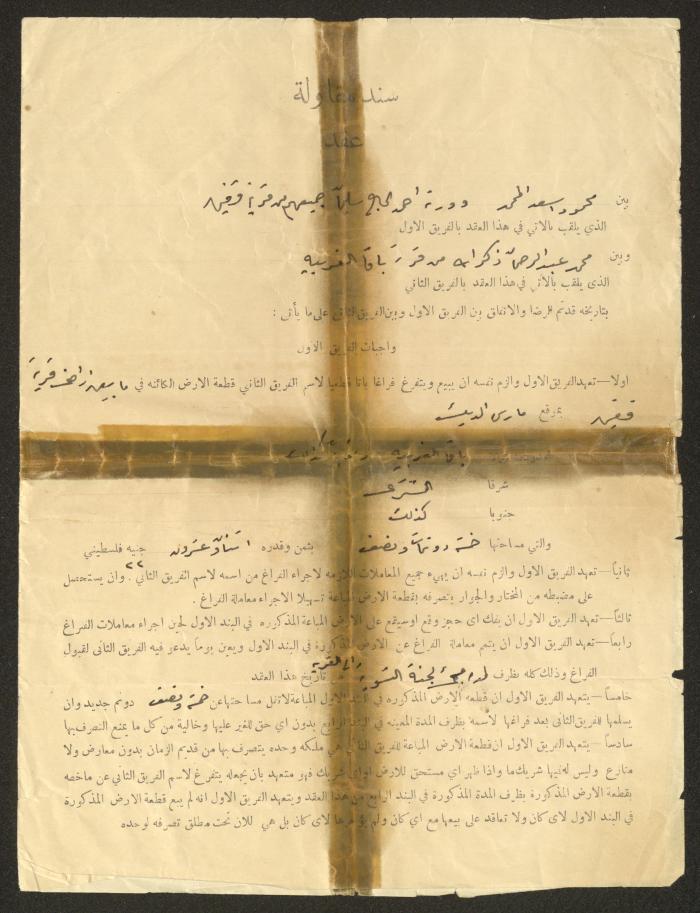 سند مقاولة
عقد
بين محمود اسعد المحمد وورثة احمد الحاج سليمان جميعهم من قرية قفين
الذي يلقب بالاتي في هذا العقد بالفريق الاول
وبين محمد عبد الرحمن من قرية باقا الغربيه
الذي يلقب بالاتي في هذا العقد بالفريق الثاني
بتاريخه قد تم الرضا والاتفاق بين الفريق الاول وبين الفريق الثاني على ما يأتي :
واجبات الفريق الاول
اولا — تعهد الفريق الاول والزم نفسه ان يبيع ويتفرغ فراغا باتا قطعيا لاسم الفريق الثاني قطعة الارض الكائنه في قرية
قفين بموقع مارس
باقا الغربيه
شرقا
جنوبا كذلك
والتي مساحتها خمسة دونمات ونصف بثمن وقدره اثنان وعشرون جنيه فلسطيني
٢٢
ثانياً — تعهد الفريق الاول والزم نفسه ان يهيء جميع المعاملات اللازمه لاجراء الفراغ من اسمه لاسم الفريق الثاني . وان يستحصل
على مضبطه من المختار والجوار بتصرفه بقطعة الارض المباعة تسهيلا لاجراء معاملة الفراغ .
ثالثاً — تعهد الفريق الاول ان يفك اي حجز وقع اوسيقع على الارض المباعة المذكوره في البند الاول لحين اجراء معاملات الفراغ
رابعاً — تعهد الفريق الاول ان يتمم معاملة الفراغ عن الارض المذكورة في البند الاول ويعين يوماً يدعو فيه الفريق الثاني لقبول
الفراغ وذلك كله بظرف لجنة التسوية من تاريخ هذا العقد
خامساً — يتعهد الفريق الاول ان قطعة الارض المذكوره في البند الاول المباعة لاتقل مساحتها عن خمسة ونصف دونم جديد وان
يسلمها للفريق الثاني بعد فراغها لاسمه بظرف المدة المعينه في البند الرابع بدون اي حق للغير عليها وخالية من كل ما يمنع التصرف بها
سادساً — يتعهد الفريق الاول ان قطعة الارض المباعة للفريق الثاني هي ملكه وحده يتصرف بها من قديم الزمان بدون معارض ولا
منازع وليس له فيها شريك ما واذا ظهر اي مستحق للارض او اي شريك فهو متعهد بان يجعله يتفرغ لاسم الفريق الثاني عن ما خصه
بقطعة الارض المذكورة بظرف المدة المذكورة في البند الرابع من هذا العقد ويتعهد الفريق الاول انه لم يبع قطعة الارض المذكورة
في البند الاول لاي كان ولا تعاقد على بيعها مع اي كان ولم يؤجرها لاي كان بل هي للان تحت مطلق تصرفه لوحده